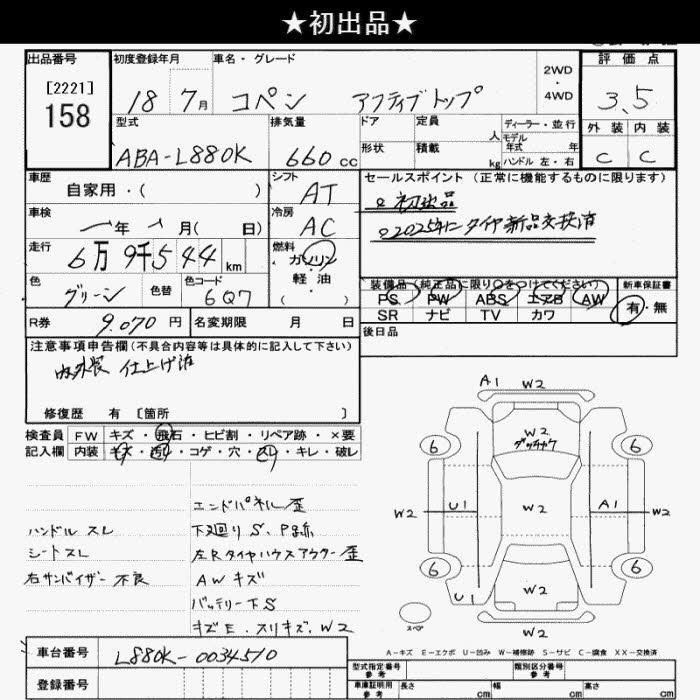 ★初出品★
出品番号
[2221]
158
初度登録年月
18 7月
車名・グレード
コペン アクティブトップ
2WD
・
4WD
評価点
3.5
外装 内装
C C
型式
ABA-L880K
排気量
660cc
ドア
定員
人
ディーラー・並行
モデル年式 年
形状
積載
kg
ハンドル 左・右
車歴
自家用・( )
シフト
AT
セールスポイント (正常に機能するものに限ります)
初出品
2025年にタイヤ新品交換済
車検
年 月( 日)
冷房
AC
走行
6万 9千544km
燃料
ガソリン
軽油
・( )
色
グリーン
色替
色コード
6Q7
装備品(純正品に限り○をつけてください)
新車保証書
PS PW ABS エアB AW
有・無
SR ナビ TV カワ
R券
9.070円
名変期限 月 日
後日品
注意事項申告欄(不具合内容等は具体的に記入して下さい)
内外装 仕上げ済
修復歴 有 〔箇所 〕
検査員
記入欄
FW キズ・飛石・ヒビ割・リペア跡・×要
内装 キズ・汚れ・コゲ・穴・スレ・キレ・破レ
エンドパネル歪
ハンドルスレ
下廻りS、P跡
シートスレ
左Rタイヤハウスアウター歪
右サンバイザー不良
AWキズ
バッテリー下S
キズE、スリキズ、W2
A1 W2
W2
6 6
U1 W2 A1
W2 W2
6 6
W2
U1
W2
スペア
A-キズ E-エクボ U-凹み W-補修跡 S-サビ C-腐食 XX-交換済
車台番号
L880K-0034510
登録番号
型式指定番号
参考
類別区分番号
参考
車庫証明用
参考
長さ cm
幅 cm
高さ cm